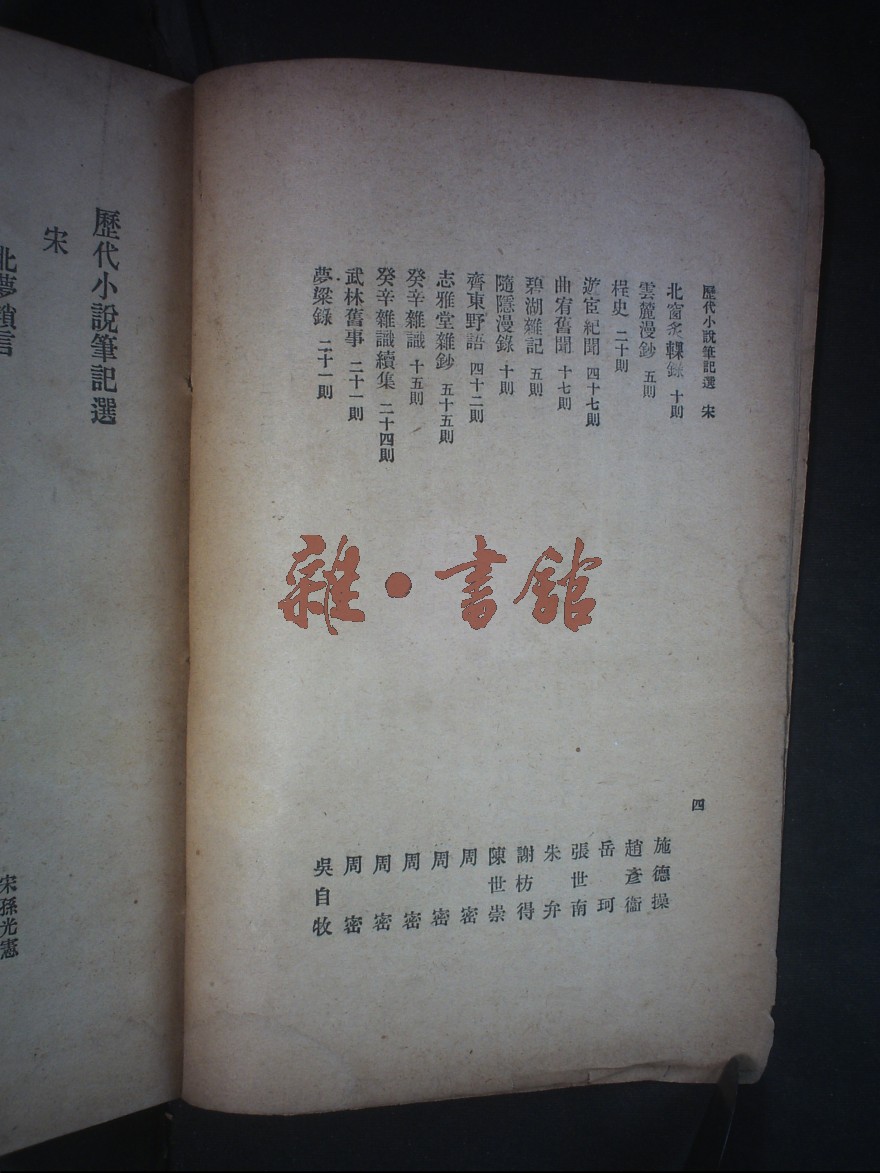 歷代小說筆記選 宋
四
北窗炙輠錄 十則 施德操
雲麓漫鈔 五則 趙彥衞
桯史 二十則 岳珂
遊宦紀聞 四十七則 張世南
曲宥舊聞 十七則 朱弁
碧湖雜記 五則 謝枋得
隨隱漫錄 十則 陳世崇
齊東野語 四十二則 周密
志雅堂雜鈔 五十五則 周密
癸辛雜識 十五則 周密
癸辛雜識續集 二十四則 周密
武林舊事 二十一則 周密
夢粱錄 二十一則 吳自牧
雜·書館
歷代小說筆記選
宋
北夢瑣言
宋孫光憲